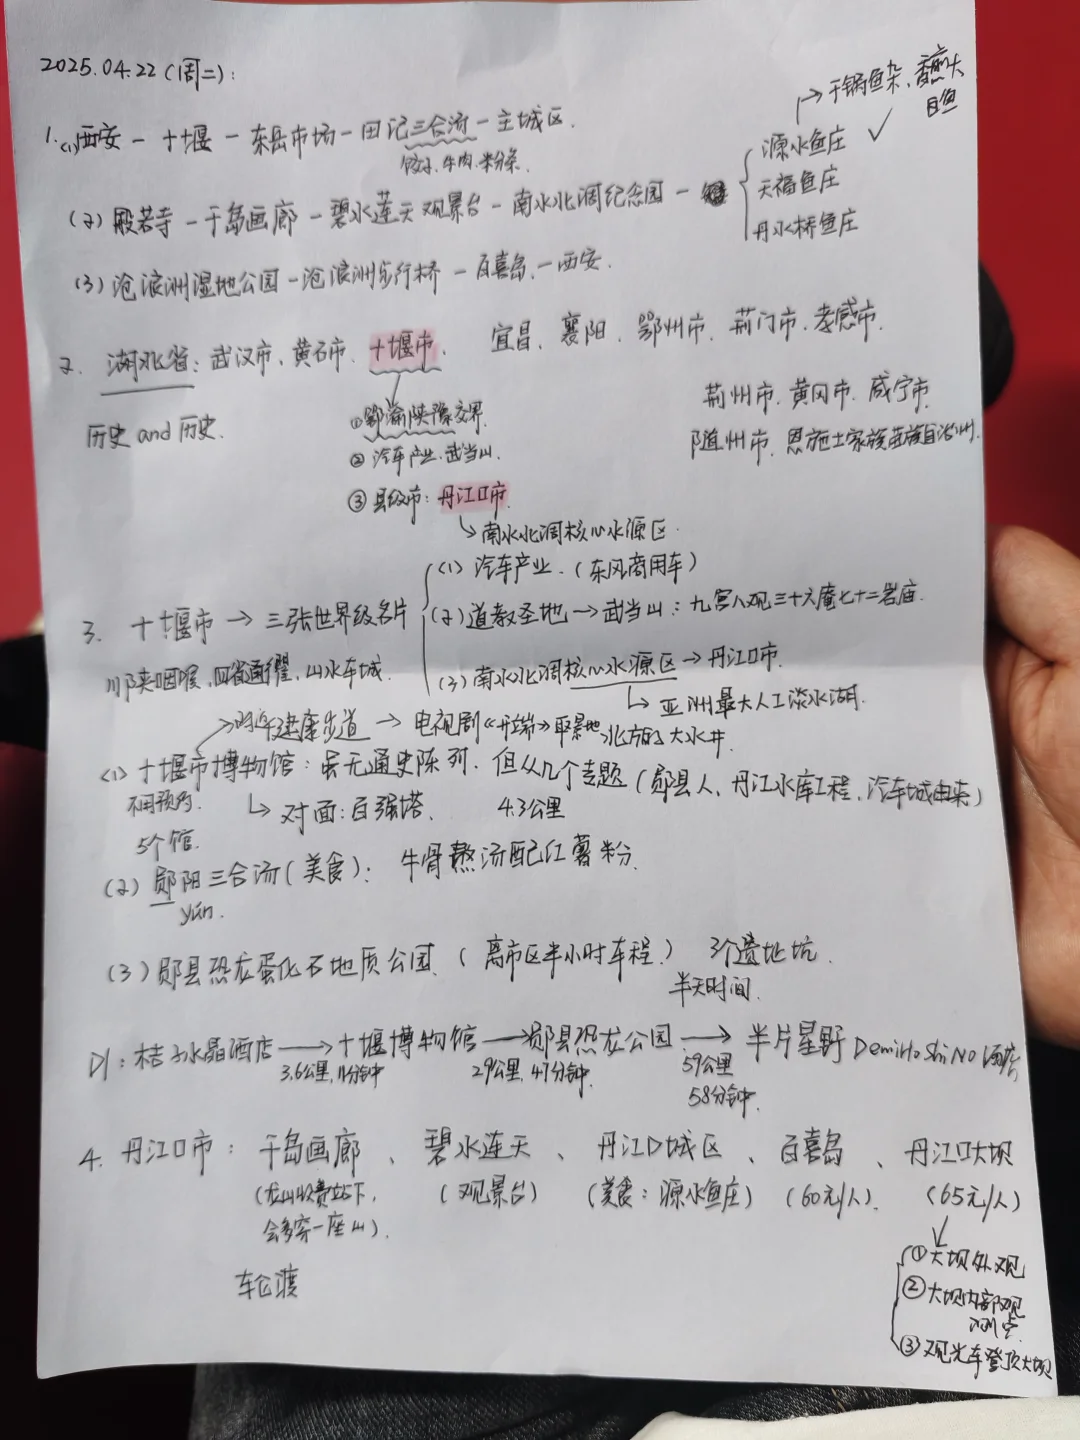 2025.04.22(周二):
→干锅鱼杂、香煎大
白鱼
1.(1)西安-十堰-东岳市场-田记三合汤-主城区.
饺子.牛肉.粉条.
源水鱼庄 ✓
天福鱼庄
丹水桥鱼庄
(2)般若寺-千岛画廊-碧水莲天观景台-南水北调纪念园-
(3)沧浪洲湿地公园-沧浪洲步行桥-百喜岛-西安.
2. 湖北省:武汉市、黄石市、十堰市、宜昌、襄阳、鄂州市、荆门市、孝感市、
荆州市、黄冈市、咸宁市、
随州市、恩施土家族苗族自治州.
历史and历史.
①鄂渝陕豫交界
②汽车产业.武当山.
③县级市:丹江口市.
↳南水北调核心水源区.
3. 十堰市→三张世界级名片
(1)汽车产业.(东风商用车)
(2)道教圣地→武当山:九宫八观三十六庵七十二岩庙.
(3)南水北调核心水源区→丹江口市.
↳亚洲最大人工淡水湖.
川陕咽喉、四省通衢、山水车城.
健康步道→电视剧《开端》取景地,北方的大水井.
(1)十堰市博物馆:虽无通史陈列.但从几个专题(郧县人、丹江水库工程、汽车城由来)
不用预约.
↳对面:百强塔. 4.3公里
5个馆.
(2)郧阳三合汤(美食):牛骨熬汤配红薯粉.
yún.
(3)郧县恐龙蛋化石地质公园.(离市区半小时车程.) 3个遗址坑.
半天时间.
D1:桔子水晶酒店→十堰博物馆→郧县恐龙公园→半片星野DemiHoShiNo酒店
3.6公里,11分钟 29公里,47分钟. 59公里
58分钟.
4. 丹江口市:千岛画廊、碧水连天、丹江口城区、百喜岛、丹江口大坝
(龙山收费站下, (观景台) (美食:源水鱼庄) (60元/人). (65元/人)
会多穿一座山).
①大坝外观
车公渡
②大坝内部观
测点
③观光车登顶大坝